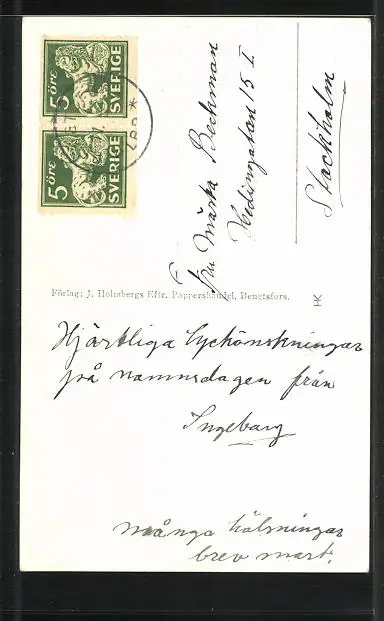 5 ÖRE
SVERIGE
5 ÖRE
SVERIGE
Fru Märta Beckman
Hedinsgatan 15 I
Stockholm
Förlag: J. Holmbergs Eftr. Pappershandel, Bengtsfors.
HK
Hjärtliga lyckönskningar
på namnsdagen från
Ingeborg
många hälsningar
brev snart.